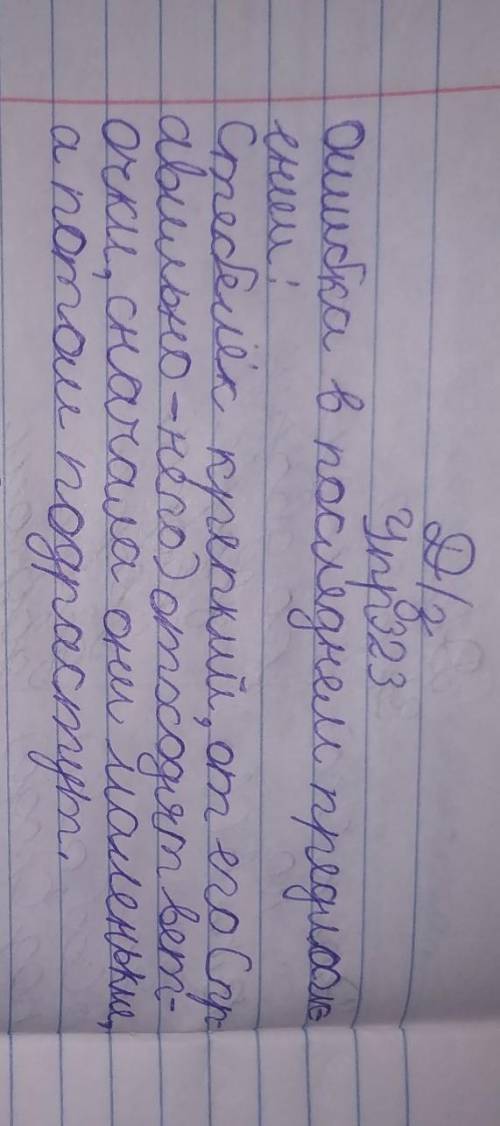 Д/з
Упр323
ошибка в последнем предлож
ении:
Стебелёк крепкий, от его (пр
авильно - него) отходят вет-
очки, сначала они маленькие,
а потом подрастут.